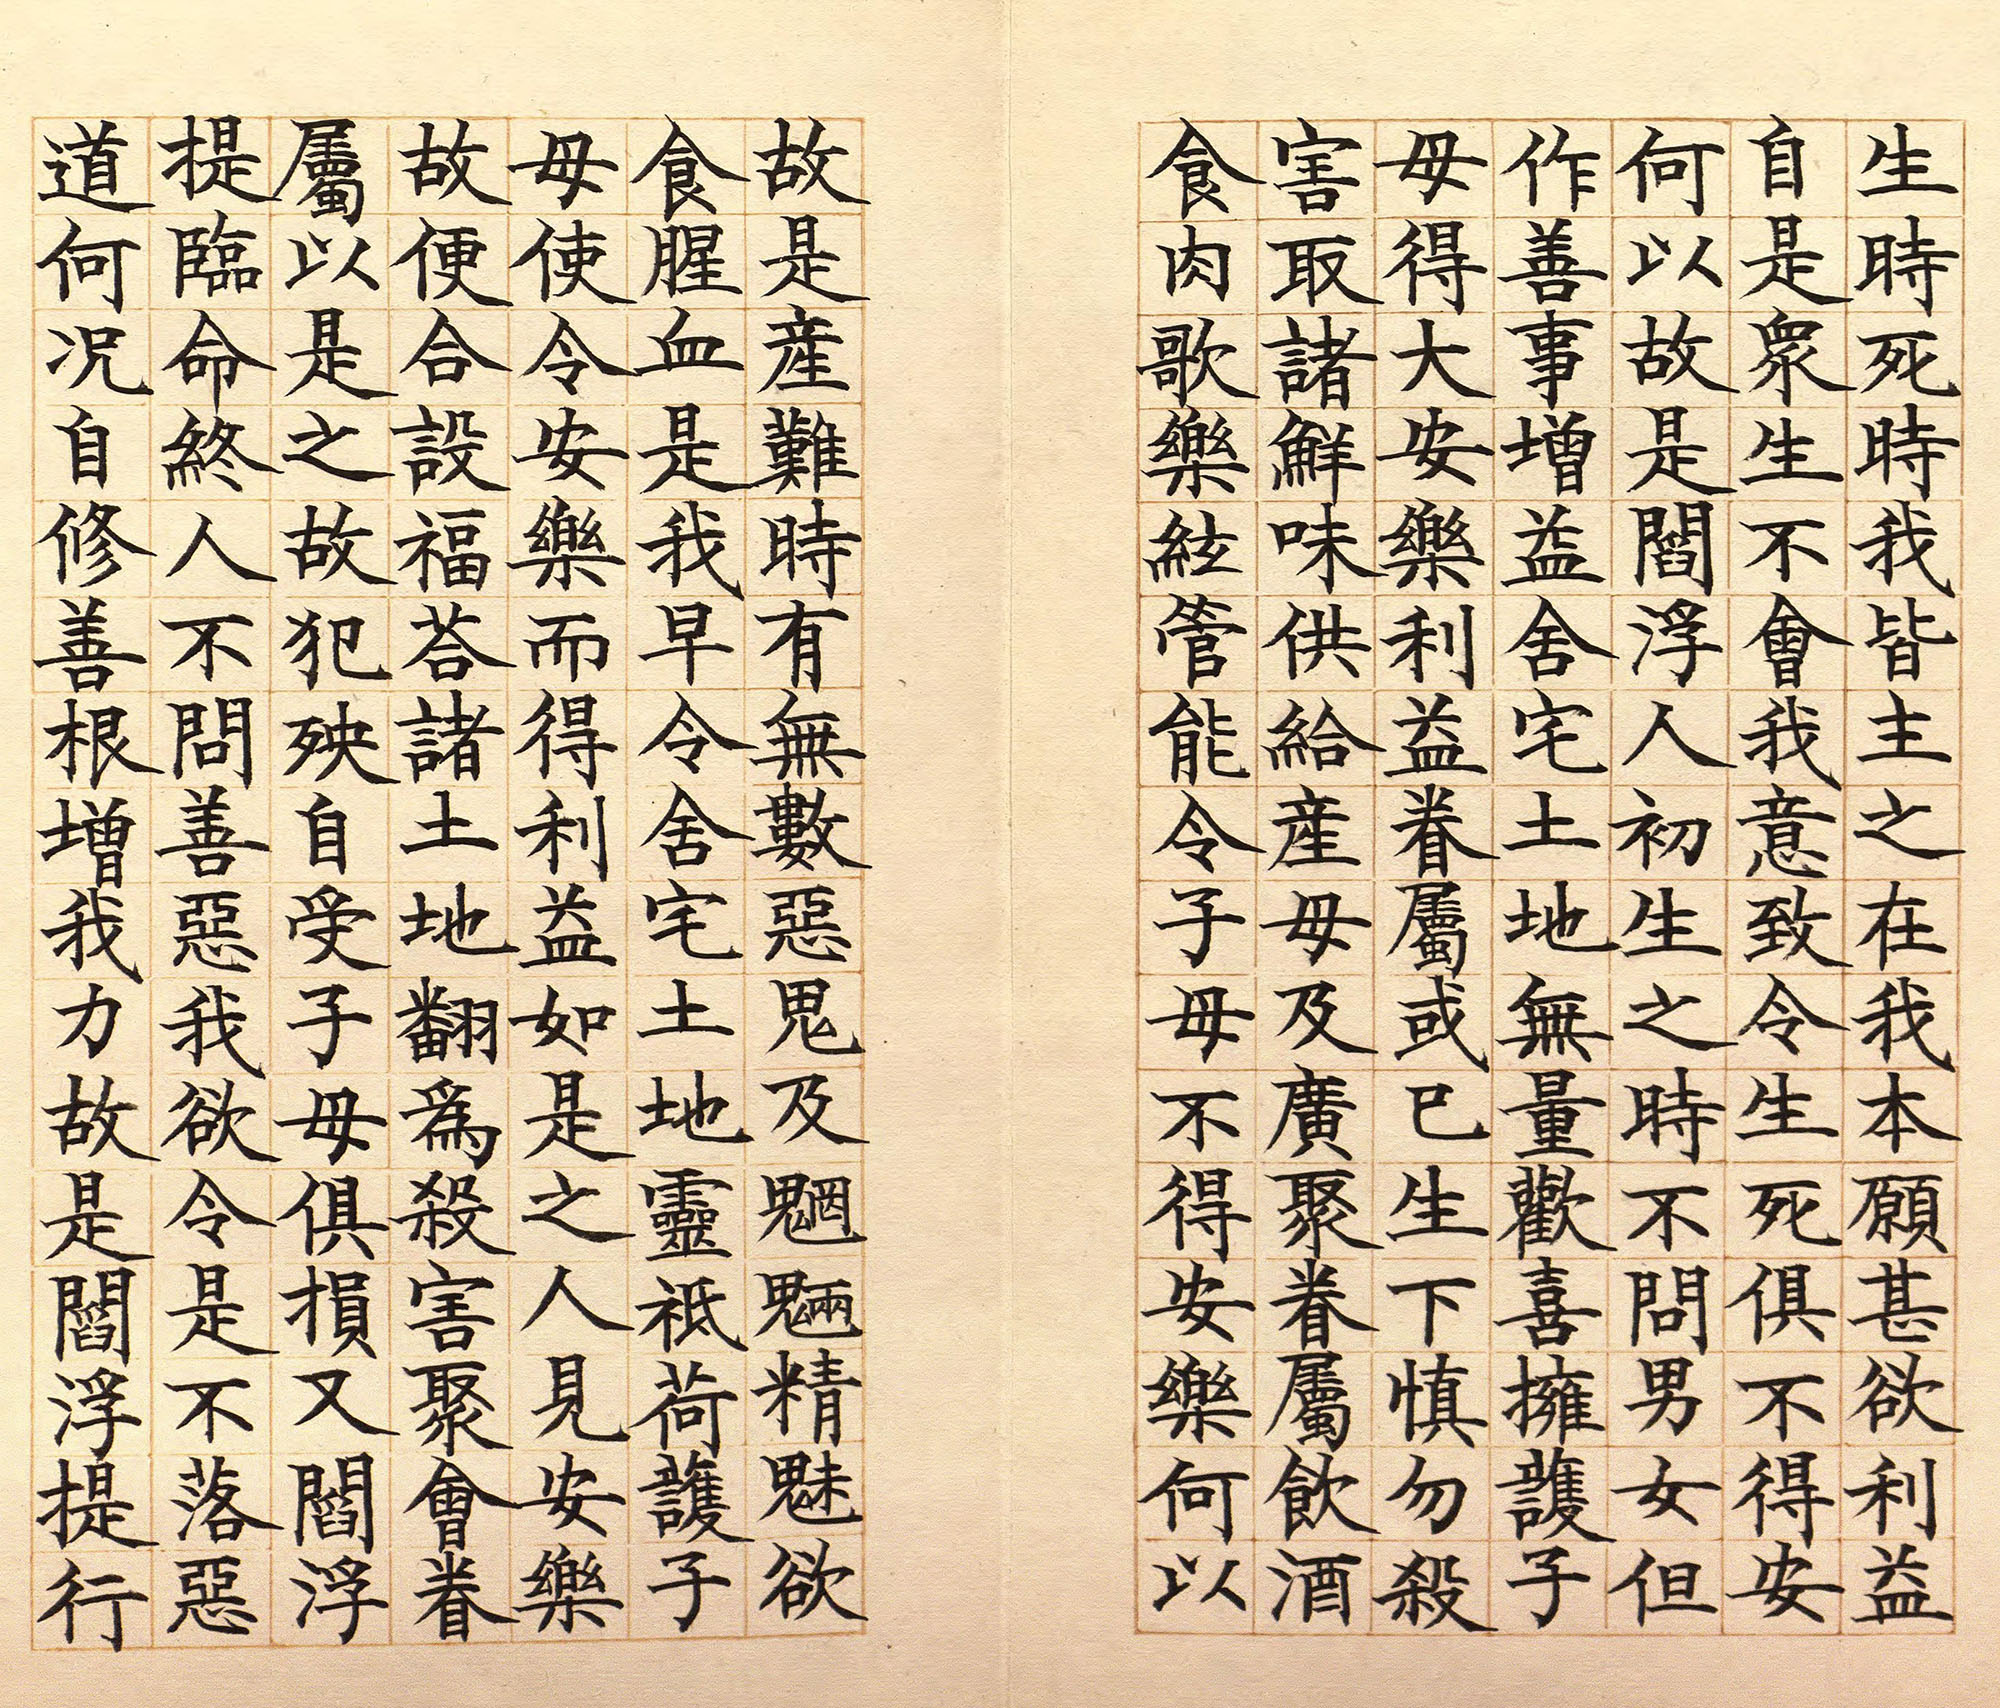 生時死時我皆主之在我本願甚欲利益
自是眾生不會我意致令生死俱不得安
何以故是閻浮人初生之時不問男女但
作善事增益舍宅土地無量歡喜擁護子
母得大安樂利益眷屬或已生下慎勿殺
害取諸鮮味供給產母及廣聚眷屬飲酒
食肉歌樂絃管能令子母不得安樂何以
故是產難時有無數惡鬼及魍魎精魅欲
食腥血是我早令舍宅土地靈祇荷護子
母使令安樂而得利益如是之人見安樂
故便合設福荅諸土地翻為殺害聚會眷
屬以是之故犯殃自受子母俱損又閻浮
提臨命終人不問善惡我欲令是不落惡
道何況自修善根增我力故是閻浮提行